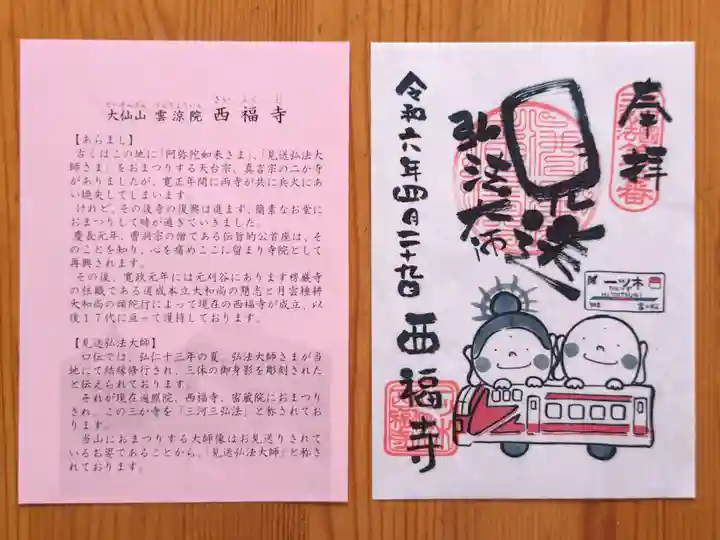 だいせんざん うんりょういん さい ふく じ
大仙山 雲涼院 西福寺
【あらまし】
古くはこの地に「阿弥陀如来さま」、「見送弘法大
師さま」をおまつりする天台宗、真言宗の二か寺
がありましたが、寛正年間に両寺が共に兵火にあ
い焼失してしまいます
けれど、その後寺の復興は進まず、簡素なお堂に
おまつりして時が過ぎていきました。
慶長元年、曹洞宗の僧である伝旨的公首座は、そ
のことを知り、心を痛めここに留まり寺院として
再興されます。
その後、寛政元年には元刈谷にあります楞厳寺
の住職である道成本立大和尚の懇志と月雲種耕
大和尚の頭陀行によって現在の西福寺が成立、以
後17代に亘って護持しております。
【見送弘法大師】
口伝では、弘仁十三年の夏、弘法大師さまが当
地にて結縁修行され、三体の御身影を彫刻された
と伝えられております。
それが現在遍照院、西福寺、密蔵院におまつり
され、この三か寺を「三河三弘法」と称されてお
ります。
当山におまつりする大師像はお見送りされてい
るお姿であることから、「見送弘法大師」と称さ
れております。
奉拝
見送
弘法大師
令和六年四月二十九日
西福寺
一ツ木